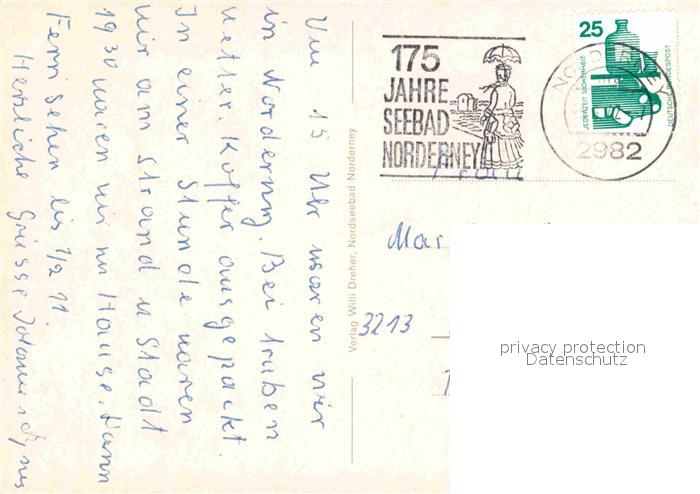 Um 15 Uhr waren wir
in Norderney. Bei trüben
Wetter. Koffer ausgepackt.
In einer Stunde waren
wir am Strand u Stadt
1930 waren wir im Hause. Dann
Fernsehen bis 1/2 11.
Herzliche Grüsse
175
JAHRE
SEEBAD
NORDERNEY
NORDERNEY
2982
25
JEDERZEIT SICHERHEIT
DEUTSCHE BUNDESPOST
Verlag Willi Dreher, Nordseebad Norderney
Mar
3213
privacy protection
Datenschutz